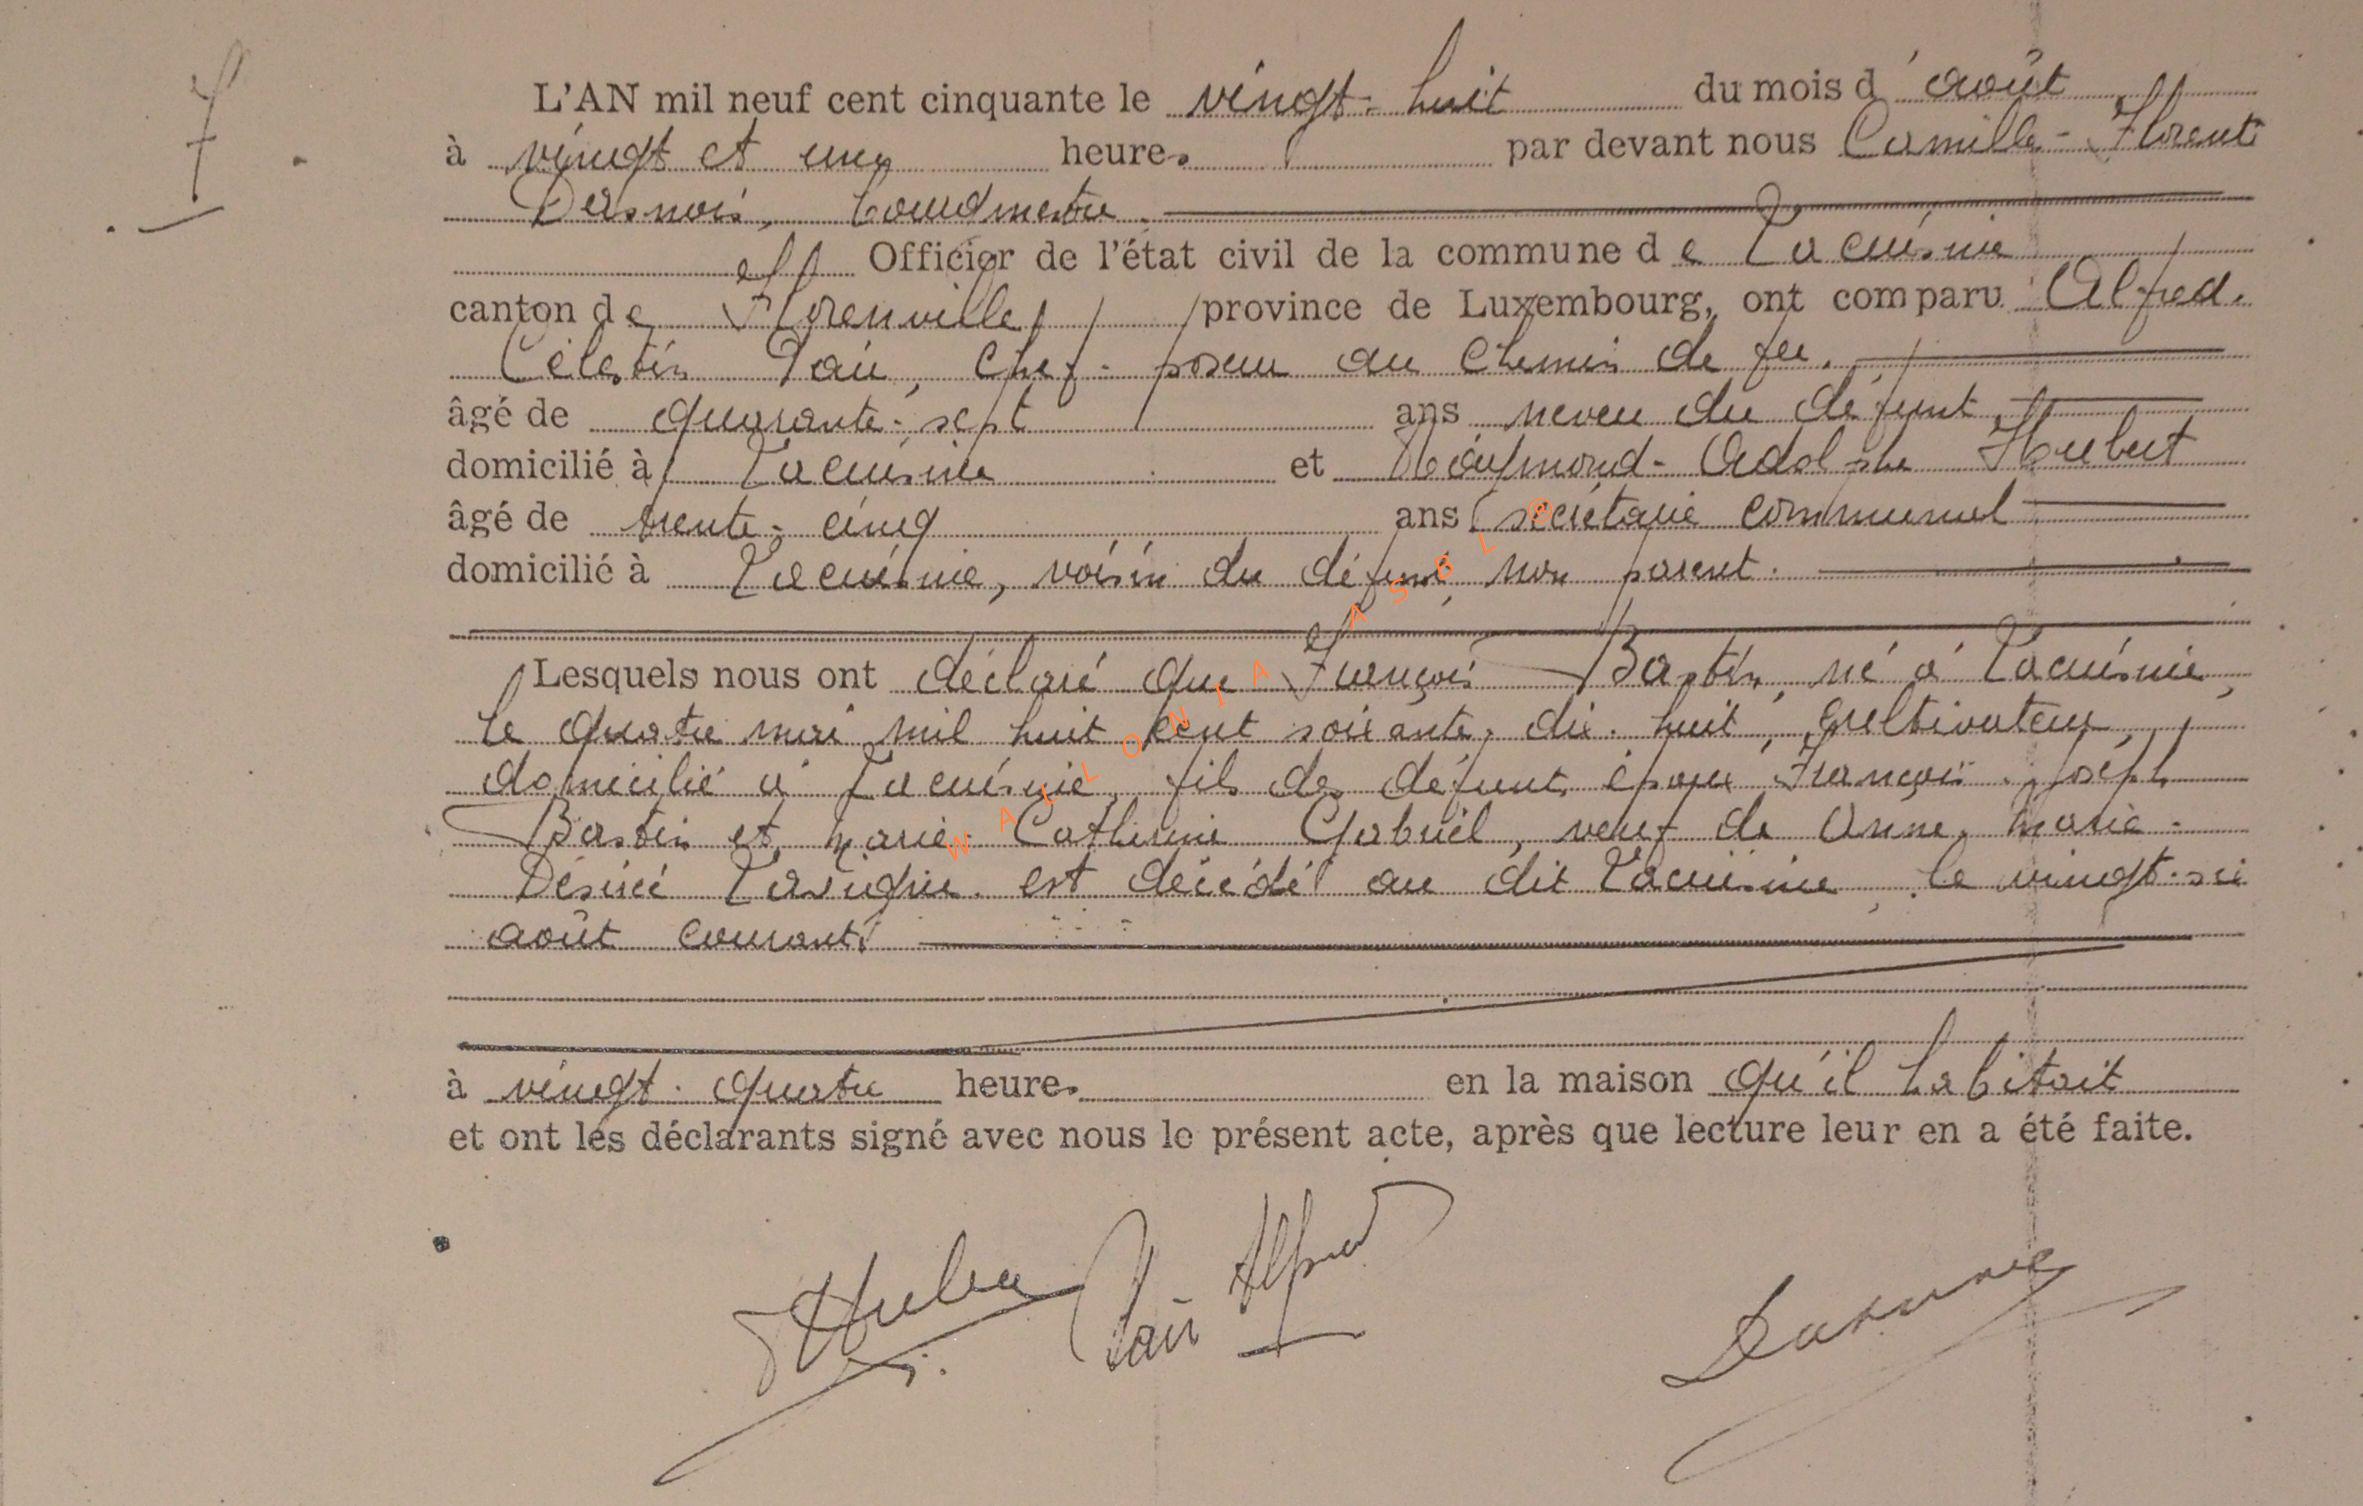 7
L'AN mil neuf cent cinquante le vingt-huit du mois d'août
à vingt et une heures par devant nous Camille-Florent
Dasnois, bourgmestre
Officier de l'état civil de la commune de Lacuisine
canton de Florenville province de Luxembourg, ont comparu Alfred-
Célestin chef-poseur au chemin de fer.
âgé de quarante-sept ans neveu du défunt
domicilié à Lacuisine et Raymond-Adolphe Hubert
âgé de trente-cinq ans secrétaire communal
domicilié à Lacuisine, voisin du défunt, non parent.
Lesquels nous ont déclaré que François Bastin, né à Lacuisine,
le quatre mai mil huit cent soixante-dix-huit, cultivateur,
domicilié à Lacuisine, fils des défunts époux François-Joseph
Bastin et Marie-Catherine Gabriel, veuf de Anne-Marie-
Désirée est décédé au dit Lacuisine, le vingt-six
août courant
à vingt-quatre heures en la maison qu'il habitait
et ont les déclarants signé avec nous le présent acte, après que lecture leur en a été faite.
Hubert Alfred
WALLONIA ASBL ©